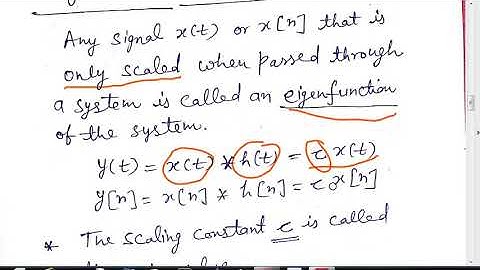 Any signal x(t) or x[n] that is
only scaled when passed through
a system is called an eigenfunction
of the system.
y(t) = x(t) * h(t) = c x(t)
y[n] = x[n] * h[n] = c x[n]
* The scaling constant c is called